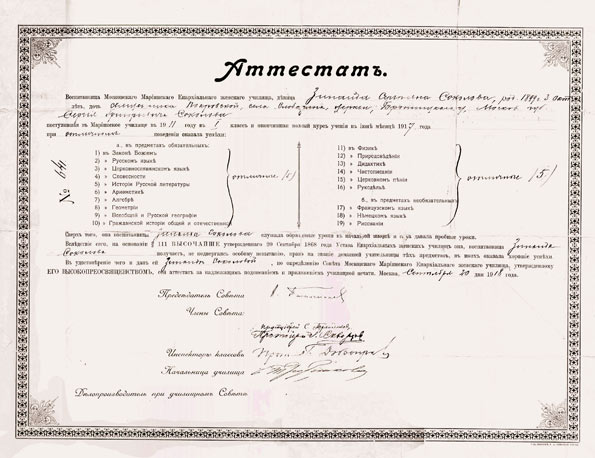 Аттестатъ.
Воспитанница Московскаго Маріинскаго Епархіальнаго женскаго училища, дѣвица Зинаида Соколова, род. 1899 г. 3
дочь священника села
поступившая въ Маріинское училище въ 1911 году въ I классъ и окончившая полный курсъ ученія въ маѣ мѣсяцѣ 1917 года
при отличномъ поведеніи оказала успѣхи:
№ 64
а., въ предметахъ обязательныхъ:
1) въ Законѣ Божіемъ
2) » Русскомъ языкѣ
3) » Церковнославянскомъ языкѣ
4) » Словесности
5) » Исторіи Русской литературы
6) » Ариѳметикѣ
7) » Алгебрѣ
8) » Геометріи
9) » Всеобщей и Русской географіи
10) » Гражданской исторіи общей и отечественной
отличные (5)
11) въ Физикѣ
12) » Природовѣдѣніи
13) » Дидактикѣ
14) » Чистописаніи
15) » Церковномъ пѣніи
16) » Рукодѣльѣ
б., въ предметахъ необязательныхъ:
17) » Французскомъ языкѣ
18) » Нѣмецкомъ языкѣ
19) » Рисованіи
отличные (5)
Сверхъ того, она воспитанница Зинаида Соколова слушала образцовые уроки въ начальной школѣ и сама давала пробные уроки.
Вслѣдствіе сего, на основаніи § 111 ВЫСОЧАЙШЕ утвержденнаго 20 Сентября 1868 года Устава Епархіальныхъ женскихъ училищъ она, воспитанница Зинаида
Соколова получаетъ, не подвергаясь особому испытанію, право на званіе домашней учительницы тѣхъ предметовъ, въ коихъ оказала хорошіе успѣхи.
Въ удостовѣреніе чего и данъ ей Зинаидѣ Соколовой, по опредѣленію Совѣта Московскаго Маріинскаго Епархіальнаго женскаго училища, утвержденному
ЕГО ВЫСОКОПРЕОСВЯЩЕНСТВОМЪ, сей аттестатъ за надлежащимъ подписаніемъ и приложеніемъ училищной печати. Москва, Сентября 20 дня 1918 года.
Предсѣдатель Совѣта
Члены Совѣта:
Протоіерей С.
Протоіерей
Инспекторъ классовъ
Начальница училища
Дѣлопроизводитель при училищномъ Совѣтѣ